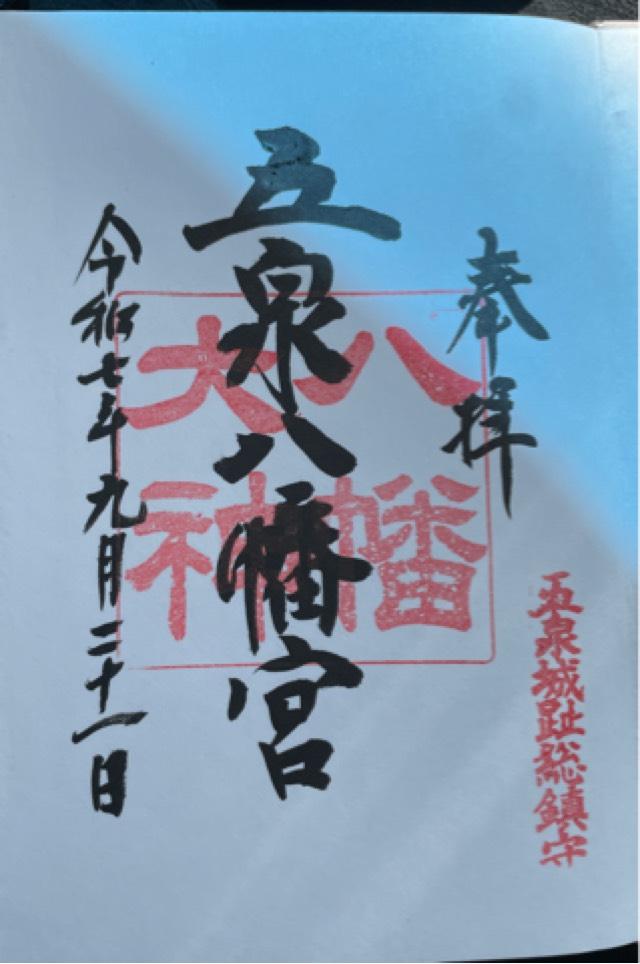 奉拝
五泉城趾総鎮守
五泉八幡宮
八幡大神
令和七年九月二十一日